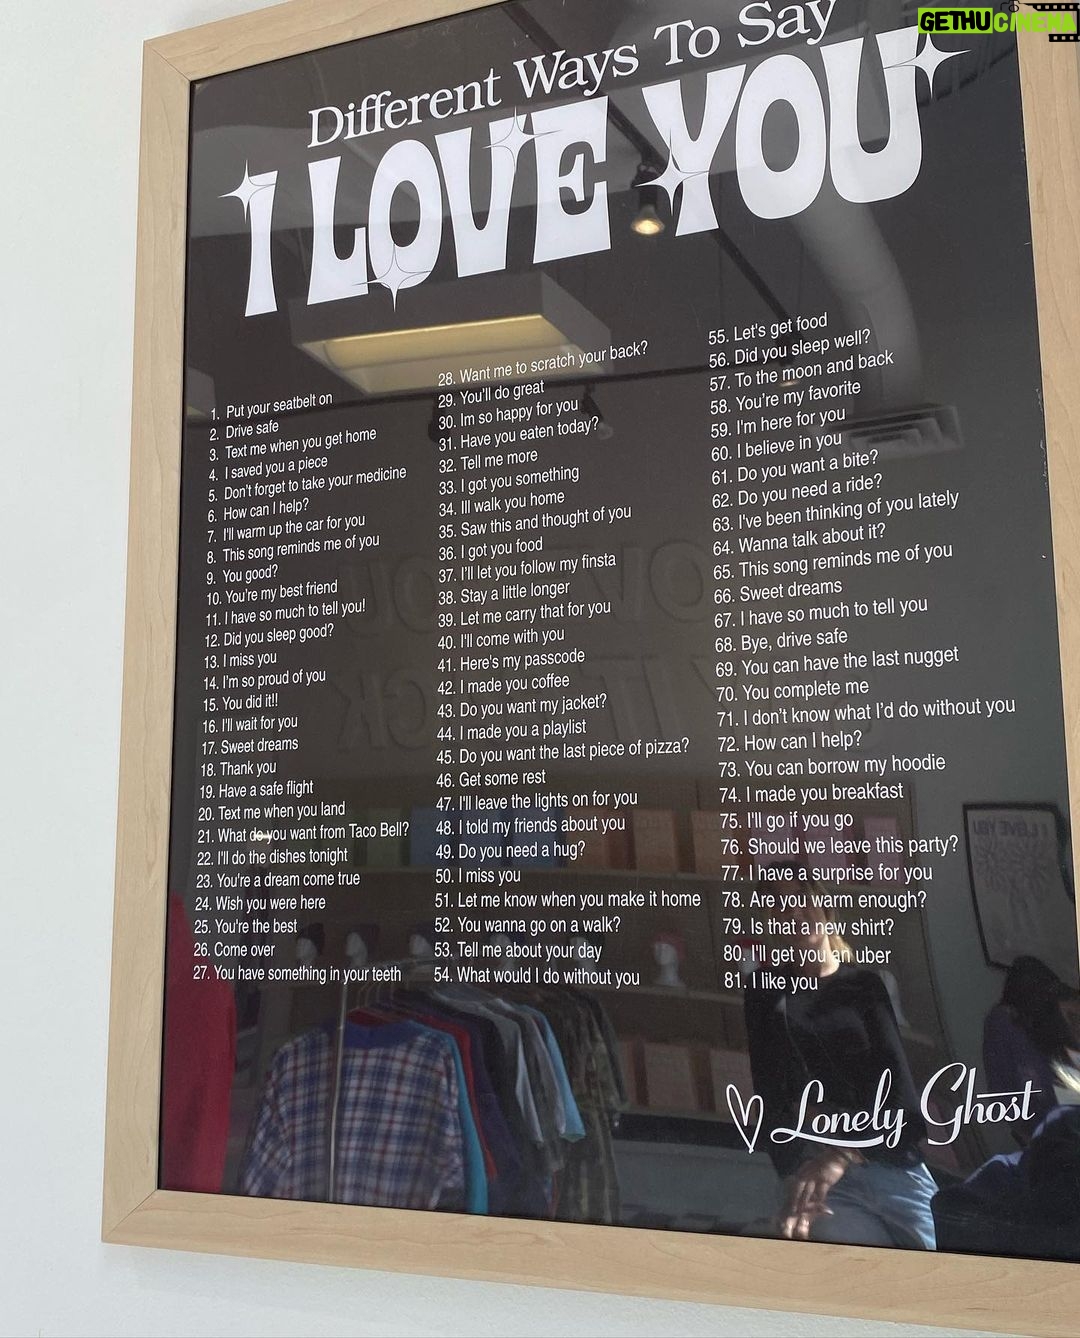 GETHUCINEMA
Different Ways To Say
I LOVE YOU
1. Put your seatbelt on
2. Drive safe
3. Text me when you get home
4. I saved you a piece
5. Don't forget to take your medicine
6. How can I help?
7. I'll warm up the car for you
8. This song reminds me of you
9. You good?
10. You're my best friend
11. I have so much to tell you!
12. Did you sleep good?
13. I miss you
14. I'm so proud of you
15. You did it!!
16. I'll wait for you
17. Sweet dreams
18. Thank you
19. Have a safe flight
20. Text me when you land
21. What do you want from Taco Bell?
22. I'll do the dishes tonight
23. You're a dream come true
24. Wish you were here
25. You're the best
26. Come over
27. You have something in your teeth
28. Want me to scratch your back?
29. You'll do great
30. Im so happy for you
31. Have you eaten today?
32. Tell me more
33. I got you something
34. Ill walk you home
35. Saw this and thought of you
36. I got you food
37. I'll let you follow my finsta
38. Stay a little longer
39. Let me carry that for you
40. I'll come with you
41. Here's my passcode
42. I made you coffee
43. Do you want my jacket?
44. I made you a playlist
45. Do you want the last piece of pizza?
46. Get some rest
47. I'll leave the lights on for you
48. I told my friends about you
49. Do you need a hug?
50. I miss you
51. Let me know when you make it home
52. You wanna go on a walk?
53. Tell me about your day
54. What would I do without you
55. Let's get food
56. Did you sleep well?
57. To the moon and back
58. You're my favorite
59. I'm here for you
60. I believe in you
61. Do you want a bite?
62. Do you need a ride?
63. I've been thinking of you lately
64. Wanna talk about it?
65. This song reminds me of you
66. Sweet dreams
67. I have so much to tell you
68. Bye, drive safe
69. You can have the last nugget
70. You complete me
71. I don't know what I'd do without you
72. How can I help?
73. You can borrow my hoodie
74. I made you breakfast
75. I'll go if you go
76. Should we leave this party?
77. I have a surprise for you
78. Are you warm enough?
79. Is that a new shirt?
80. I'll get you an uber
81. I like you
Lonely Ghost